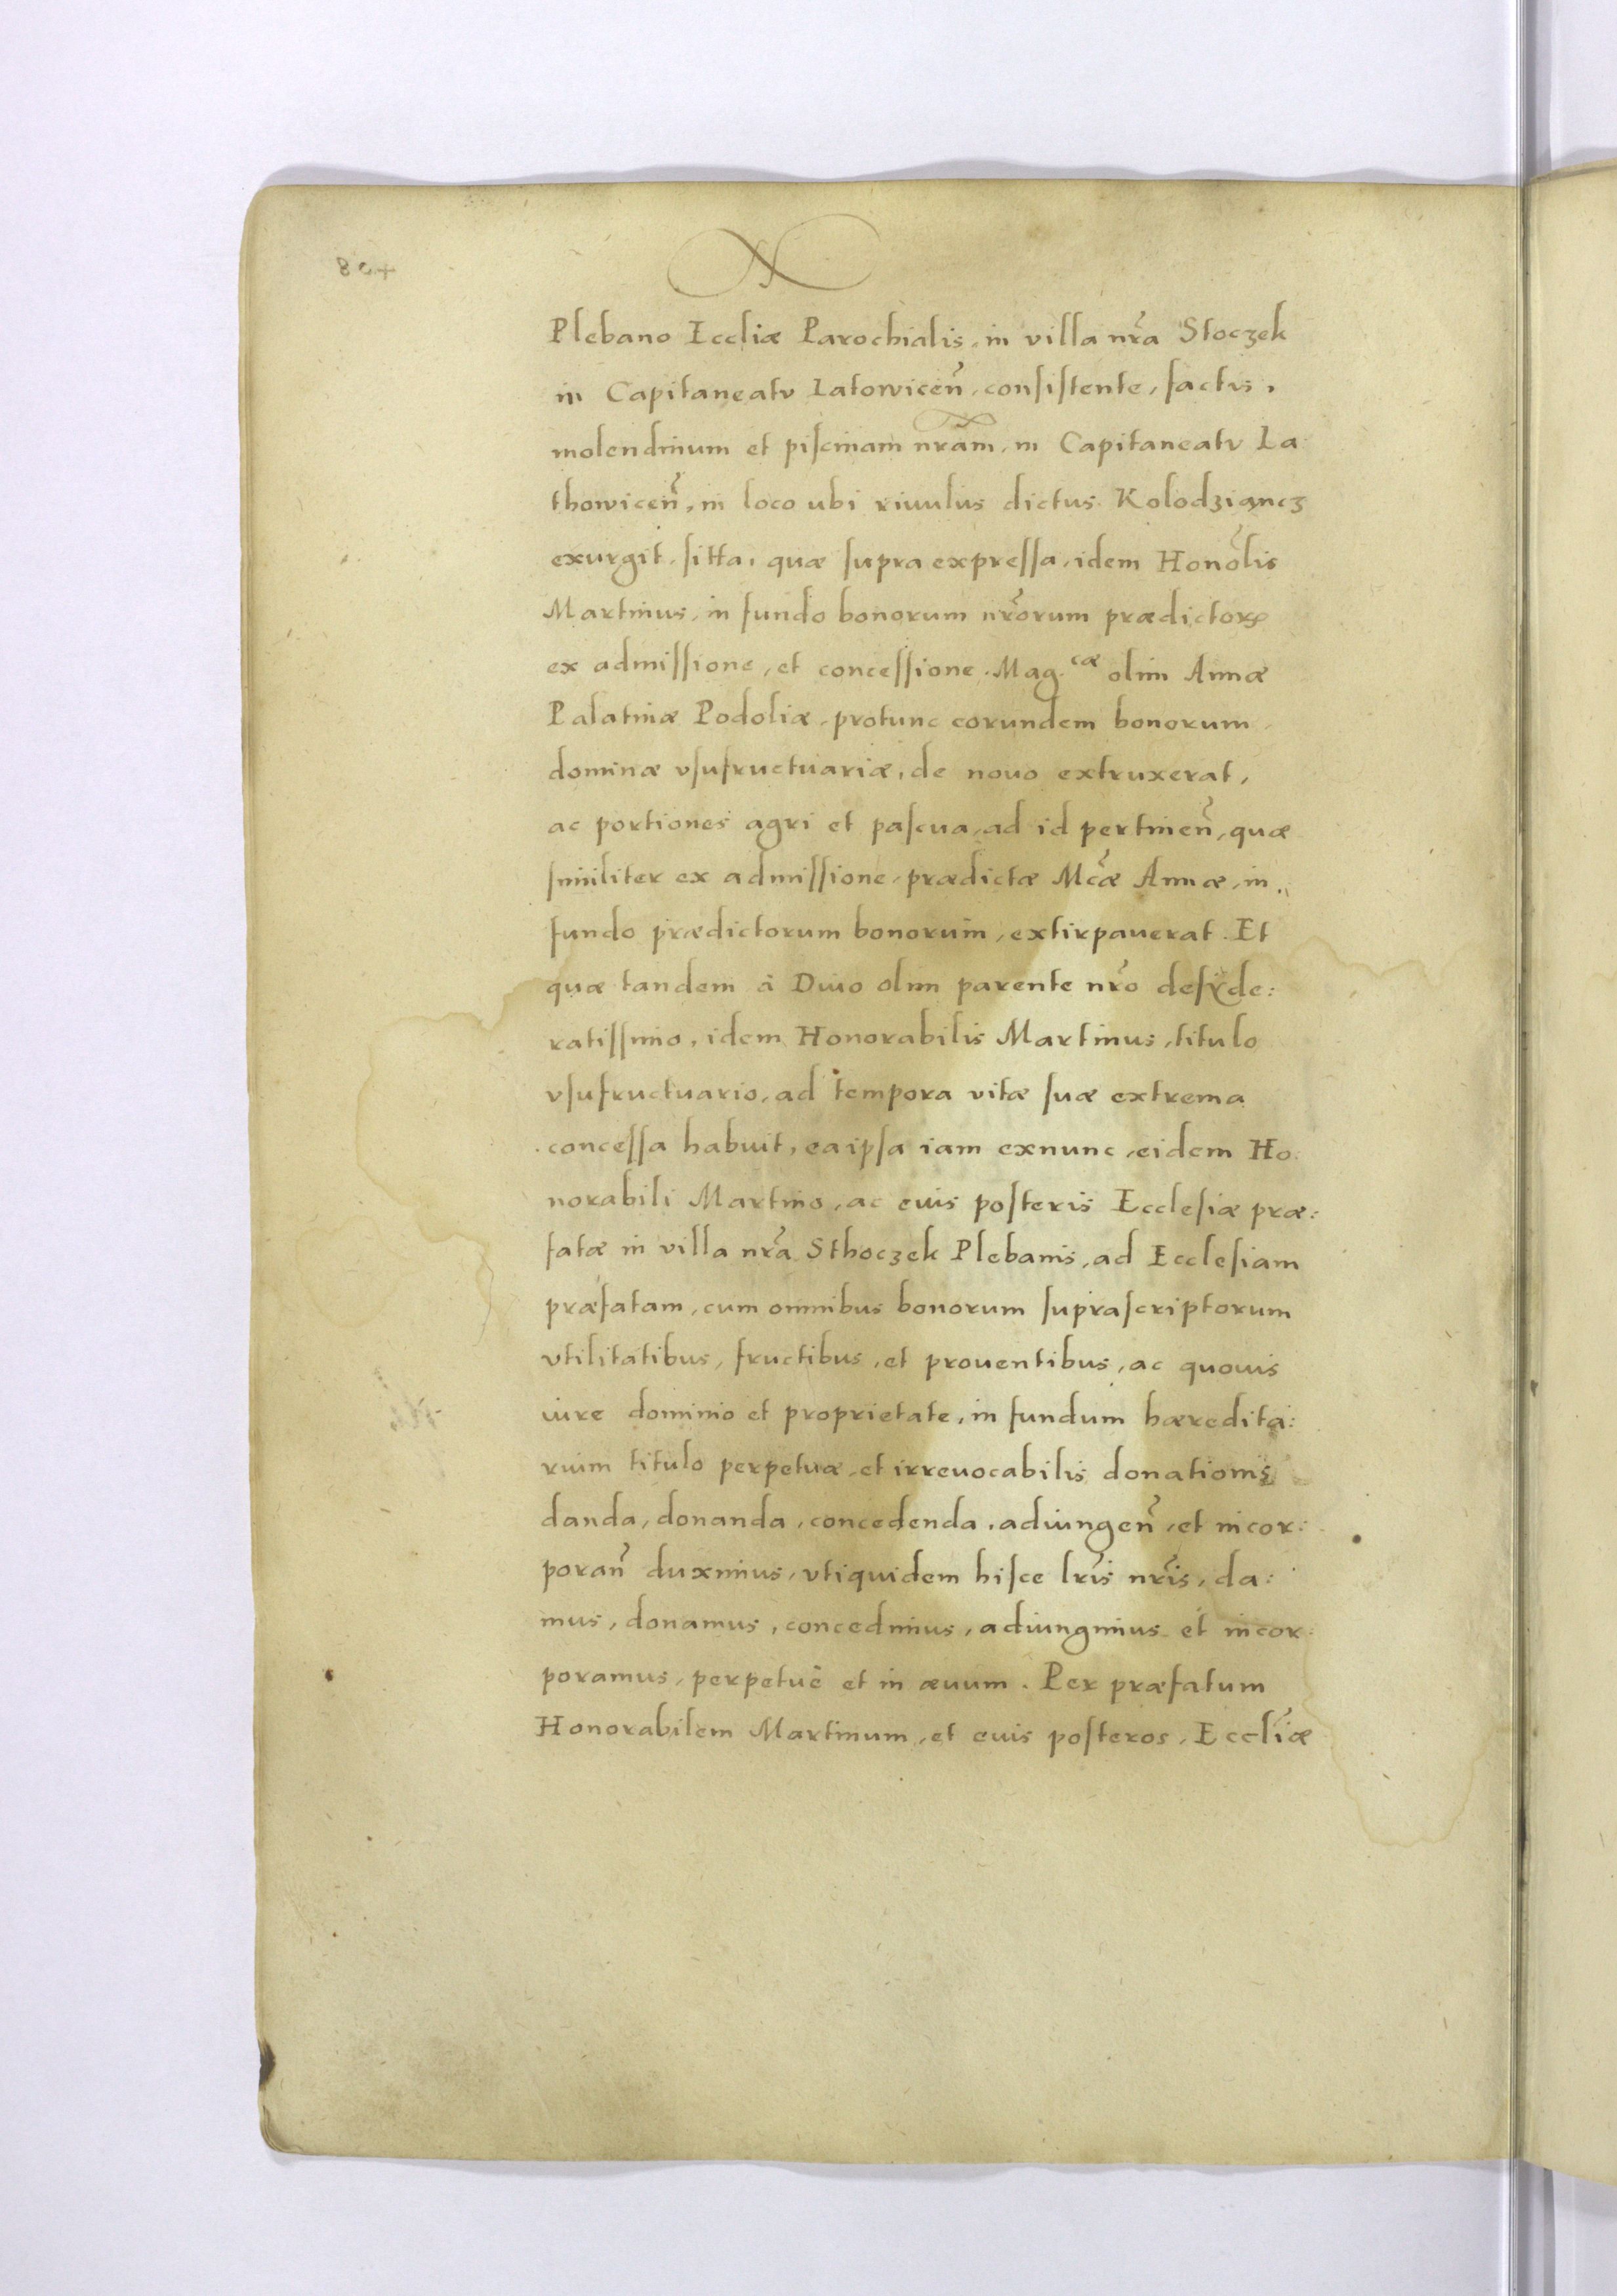 Plebano Eccliæ Parochialis, in villa nr̃a Stoczek
in Capitaneatu Latowiceñ, consistente, factis,
molendinum et piscinam nr̃am, in Capitaneatu La:
thowiceñ, in loco ubi riuulus dictus Kolodziąncz
exurgit, sitta, quæ supra expressa, idem Honõlis
Martinus, in fundo bonorum nr̃orum prædictorꝝ
ex admissione, et concessione Mag.cæ olim Annæ
Palatinæ Podoliæ, protunc eorundem bonorum
dominæ vsufructuariæ, de nouo extruxerat,
ac portiones agri et pascua, ad id pertineñ, quæ
similiter ex admissione, prædictæ Mc̃æ Annæ, in
fundo prædictorum bonorum, extirpauerat. Et
quæ tandem à Diuo olim parente nr̃o desyde:
ratissimo, idem Honorabilis Martinus, titulo
vsufructuario, ad tempora vitæ suæ extrema
concessa habuit, ea ipsa iam exnunc, eidem Ho:
norabili Martino, ac euis posteris Ecclesiæ præ:
fatæ in villa nr̃a Sthoczek Plebanis, ad Ecclesiam
præfatam, cum omnibus bonorum suprascriptorum
vtilitatibus, fructibus, et prouentibus, ac quouis
iure dominio et proprietate, in fundum hæredita:
rium titulo perpetuæ, et irreuocabilis donationis
danda, donanda, concedenda, adiungeñ, et incor:
porañ duximus, vtiquidem hisce lr̃is nr̃is, da:
mus, donamus, concedimus, adiungimus et incor:
poramus, perpetuè et in æuum. Per præfatum
Honorabilem Martinum, et euis posteros, Eccl̃iæ